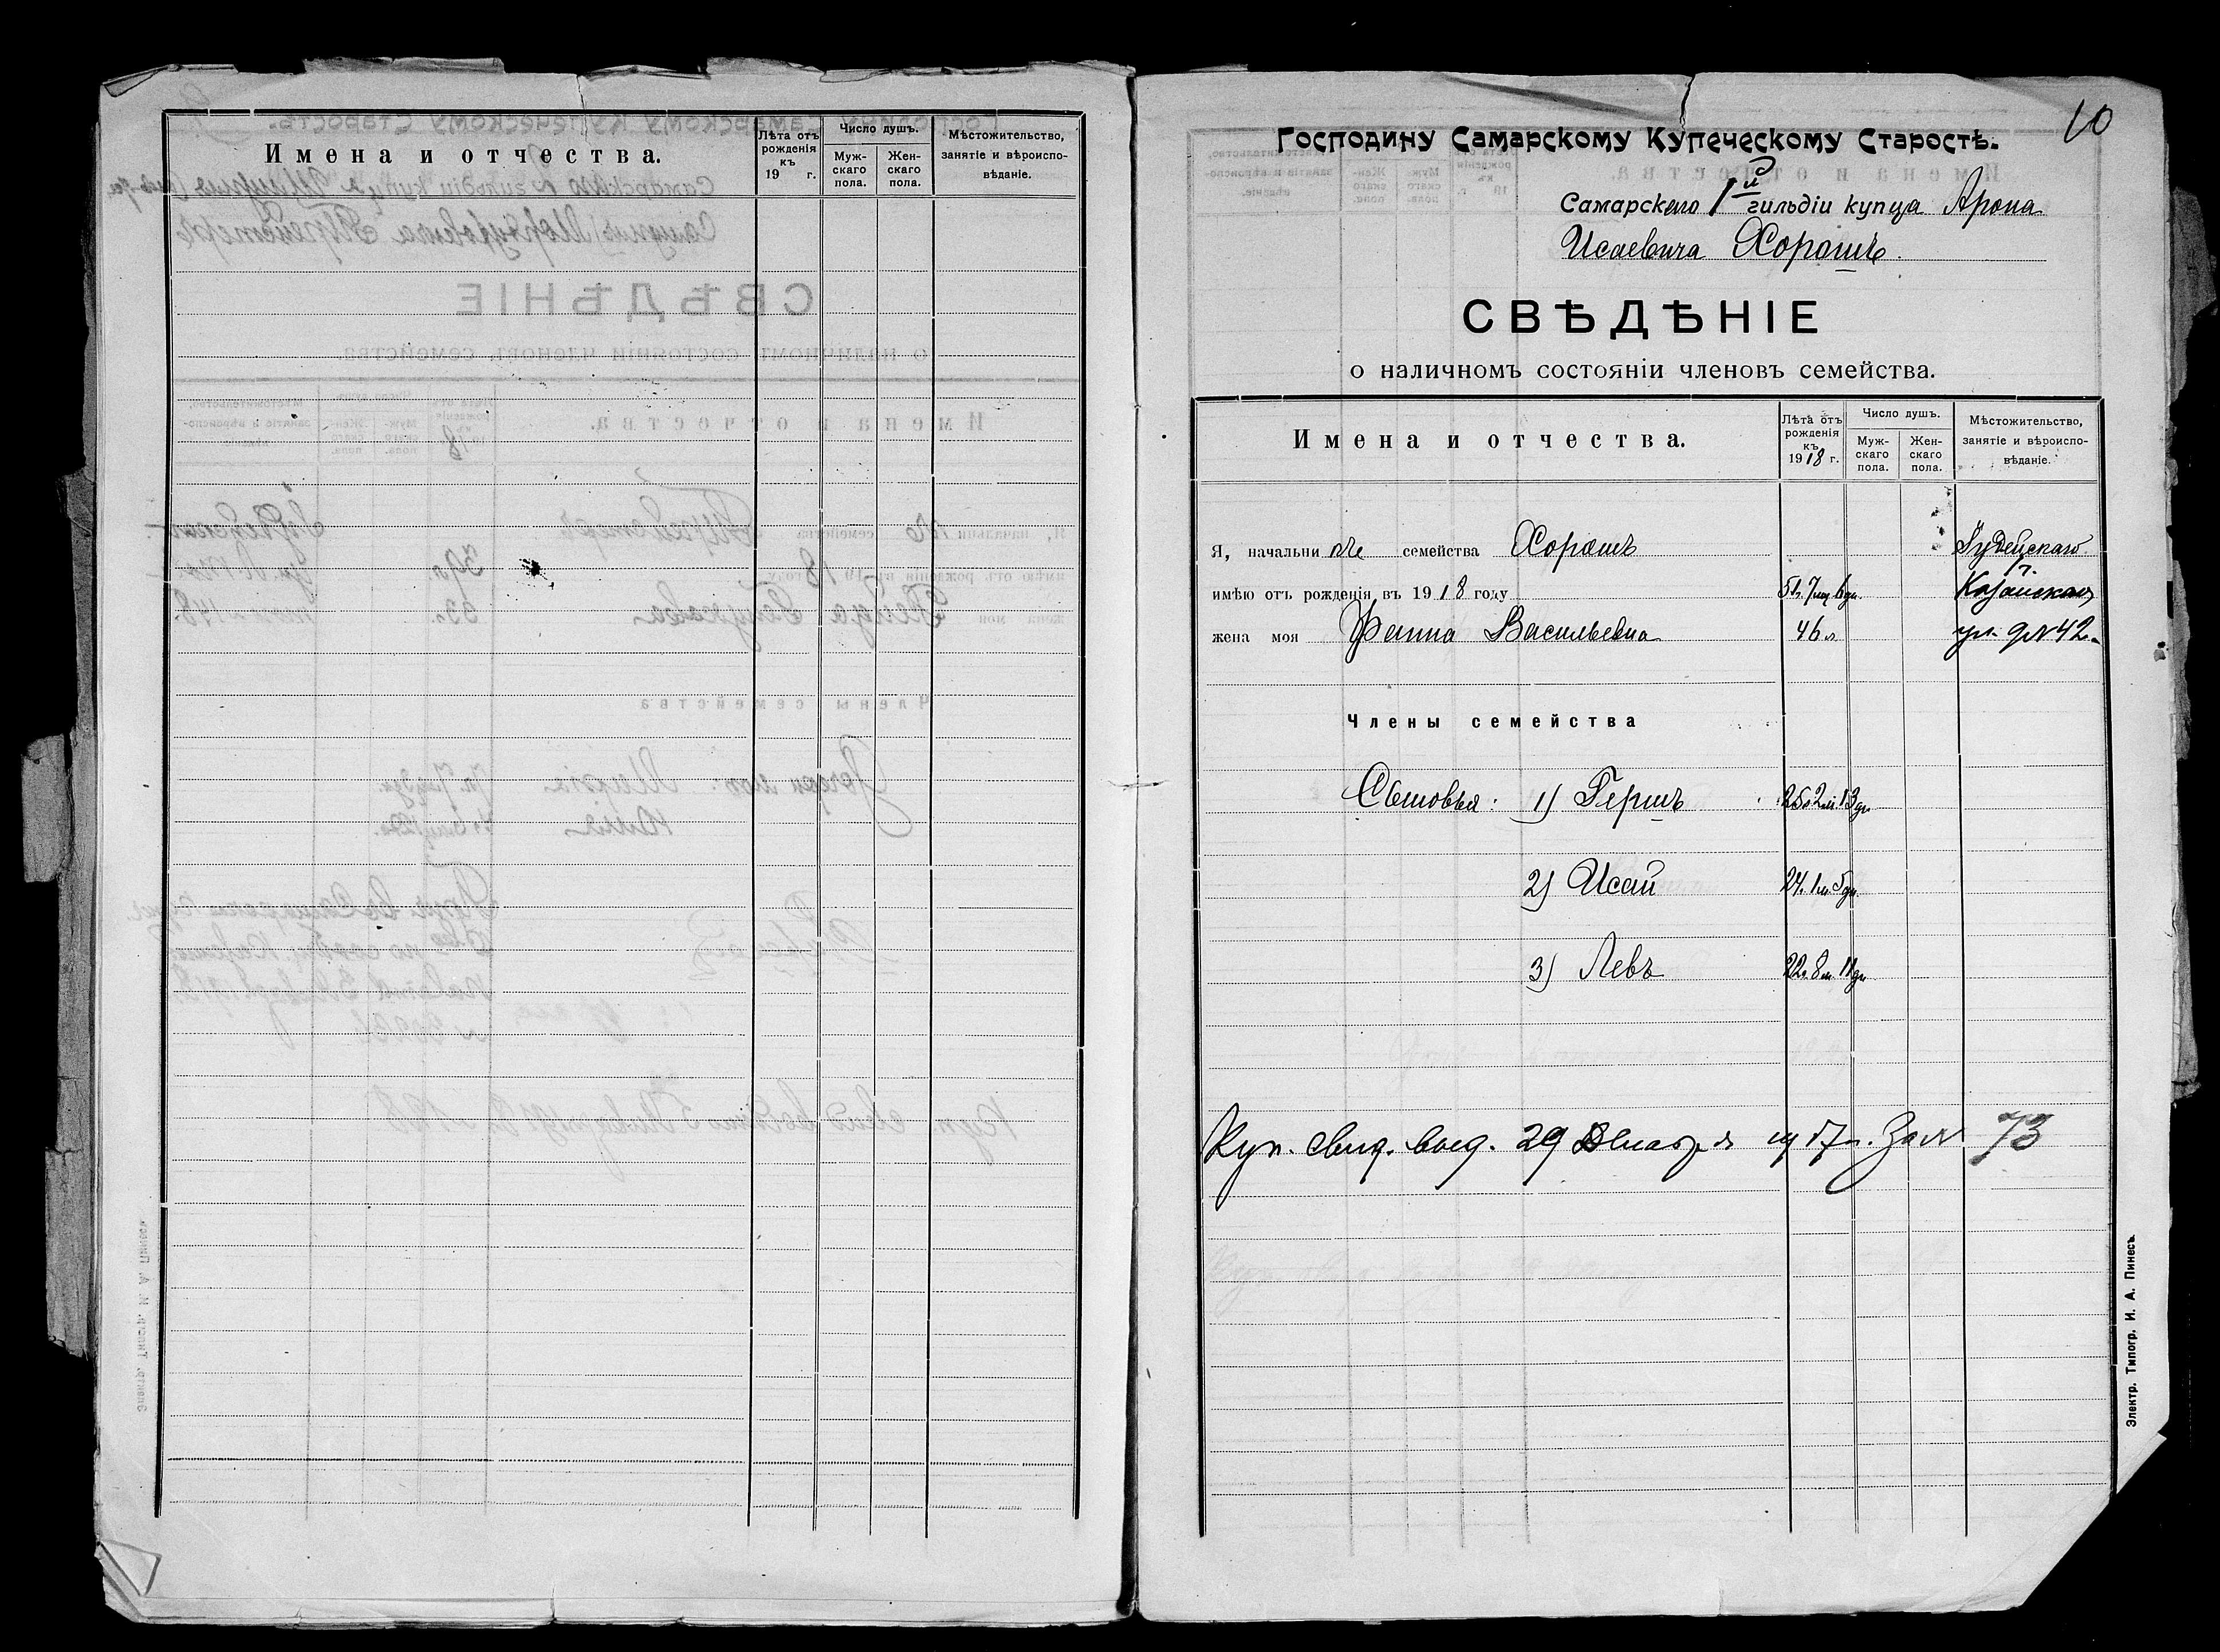 Имена и отчества.
Лѣта отъ рожденія къ 19 г.
Число душъ.
Муж-
скаго
пола.
Жен-
скаго
пола.
Мѣстожительство,
занятіе и вѣроиспо-
вѣданіе.
10
Господину Самарскому Купеческому Старостѣ.
Самарскаго 1й гильдіи купца Арона
Исаевича Хорошъ.
СВѢДѢНІЕ
о наличномъ состояніи членовъ семейства.
Имена и отчества.
Лѣта отъ
рожденія
къ
1918 г.
Число душъ.
Муж-
скаго
пола.
Жен-
скаго
пола.
Мѣстожительство,
занятіе и вѣроиспо-
вѣданіе.
Я, начальни семейства Хорошъ Іудейскаго.
имѣю отъ рожденія въ 1918 году 51л. 7м. 6дн. Казанская
жена моя Фанна Васильевна 46 л. ул. д№ 42.
Члены семейства
Сыновья: 1) Гершъ 25л. 2м. 13дн.
2) Исай 24. 1м 5дн.
3) Левъ 22л. 8м. 11дн
Куп. свид. выд. 29 Декабря 1917г. За № 73
Электр. Типогр. И. А. Пинесъ.